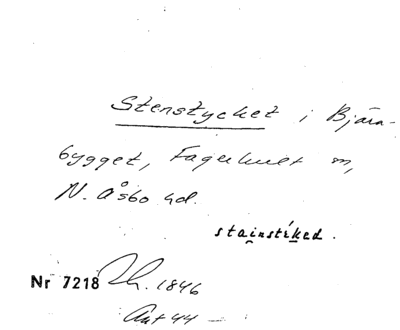 Stenstycket i Bjära-
bygget, Fagerhult sn,
N. Åsbo hd.
stainstíked.
Nr 7218 Lh. 1846
Ant 44 —